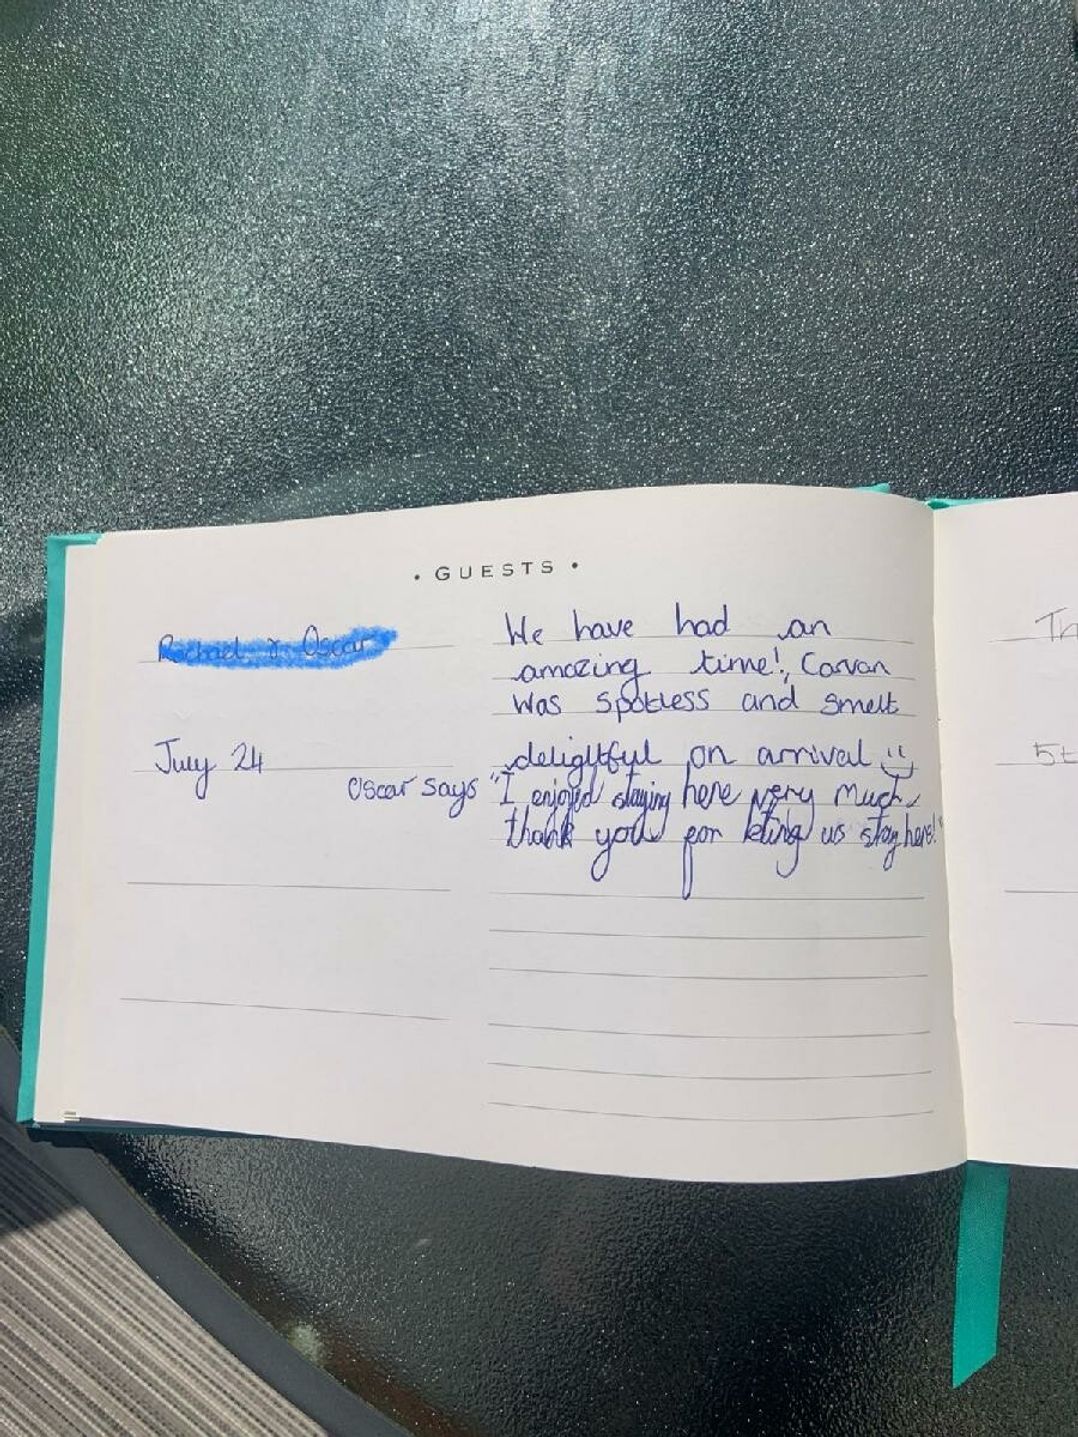 • GUESTS •
Rachael & Oscar
We have had an
amazing time!, Carvan
was spotless and smelt
July 24
delightful on arrival
Oscar says "I enjoyed staying here very much,
thank you for leting us stay here!"
Th
5t